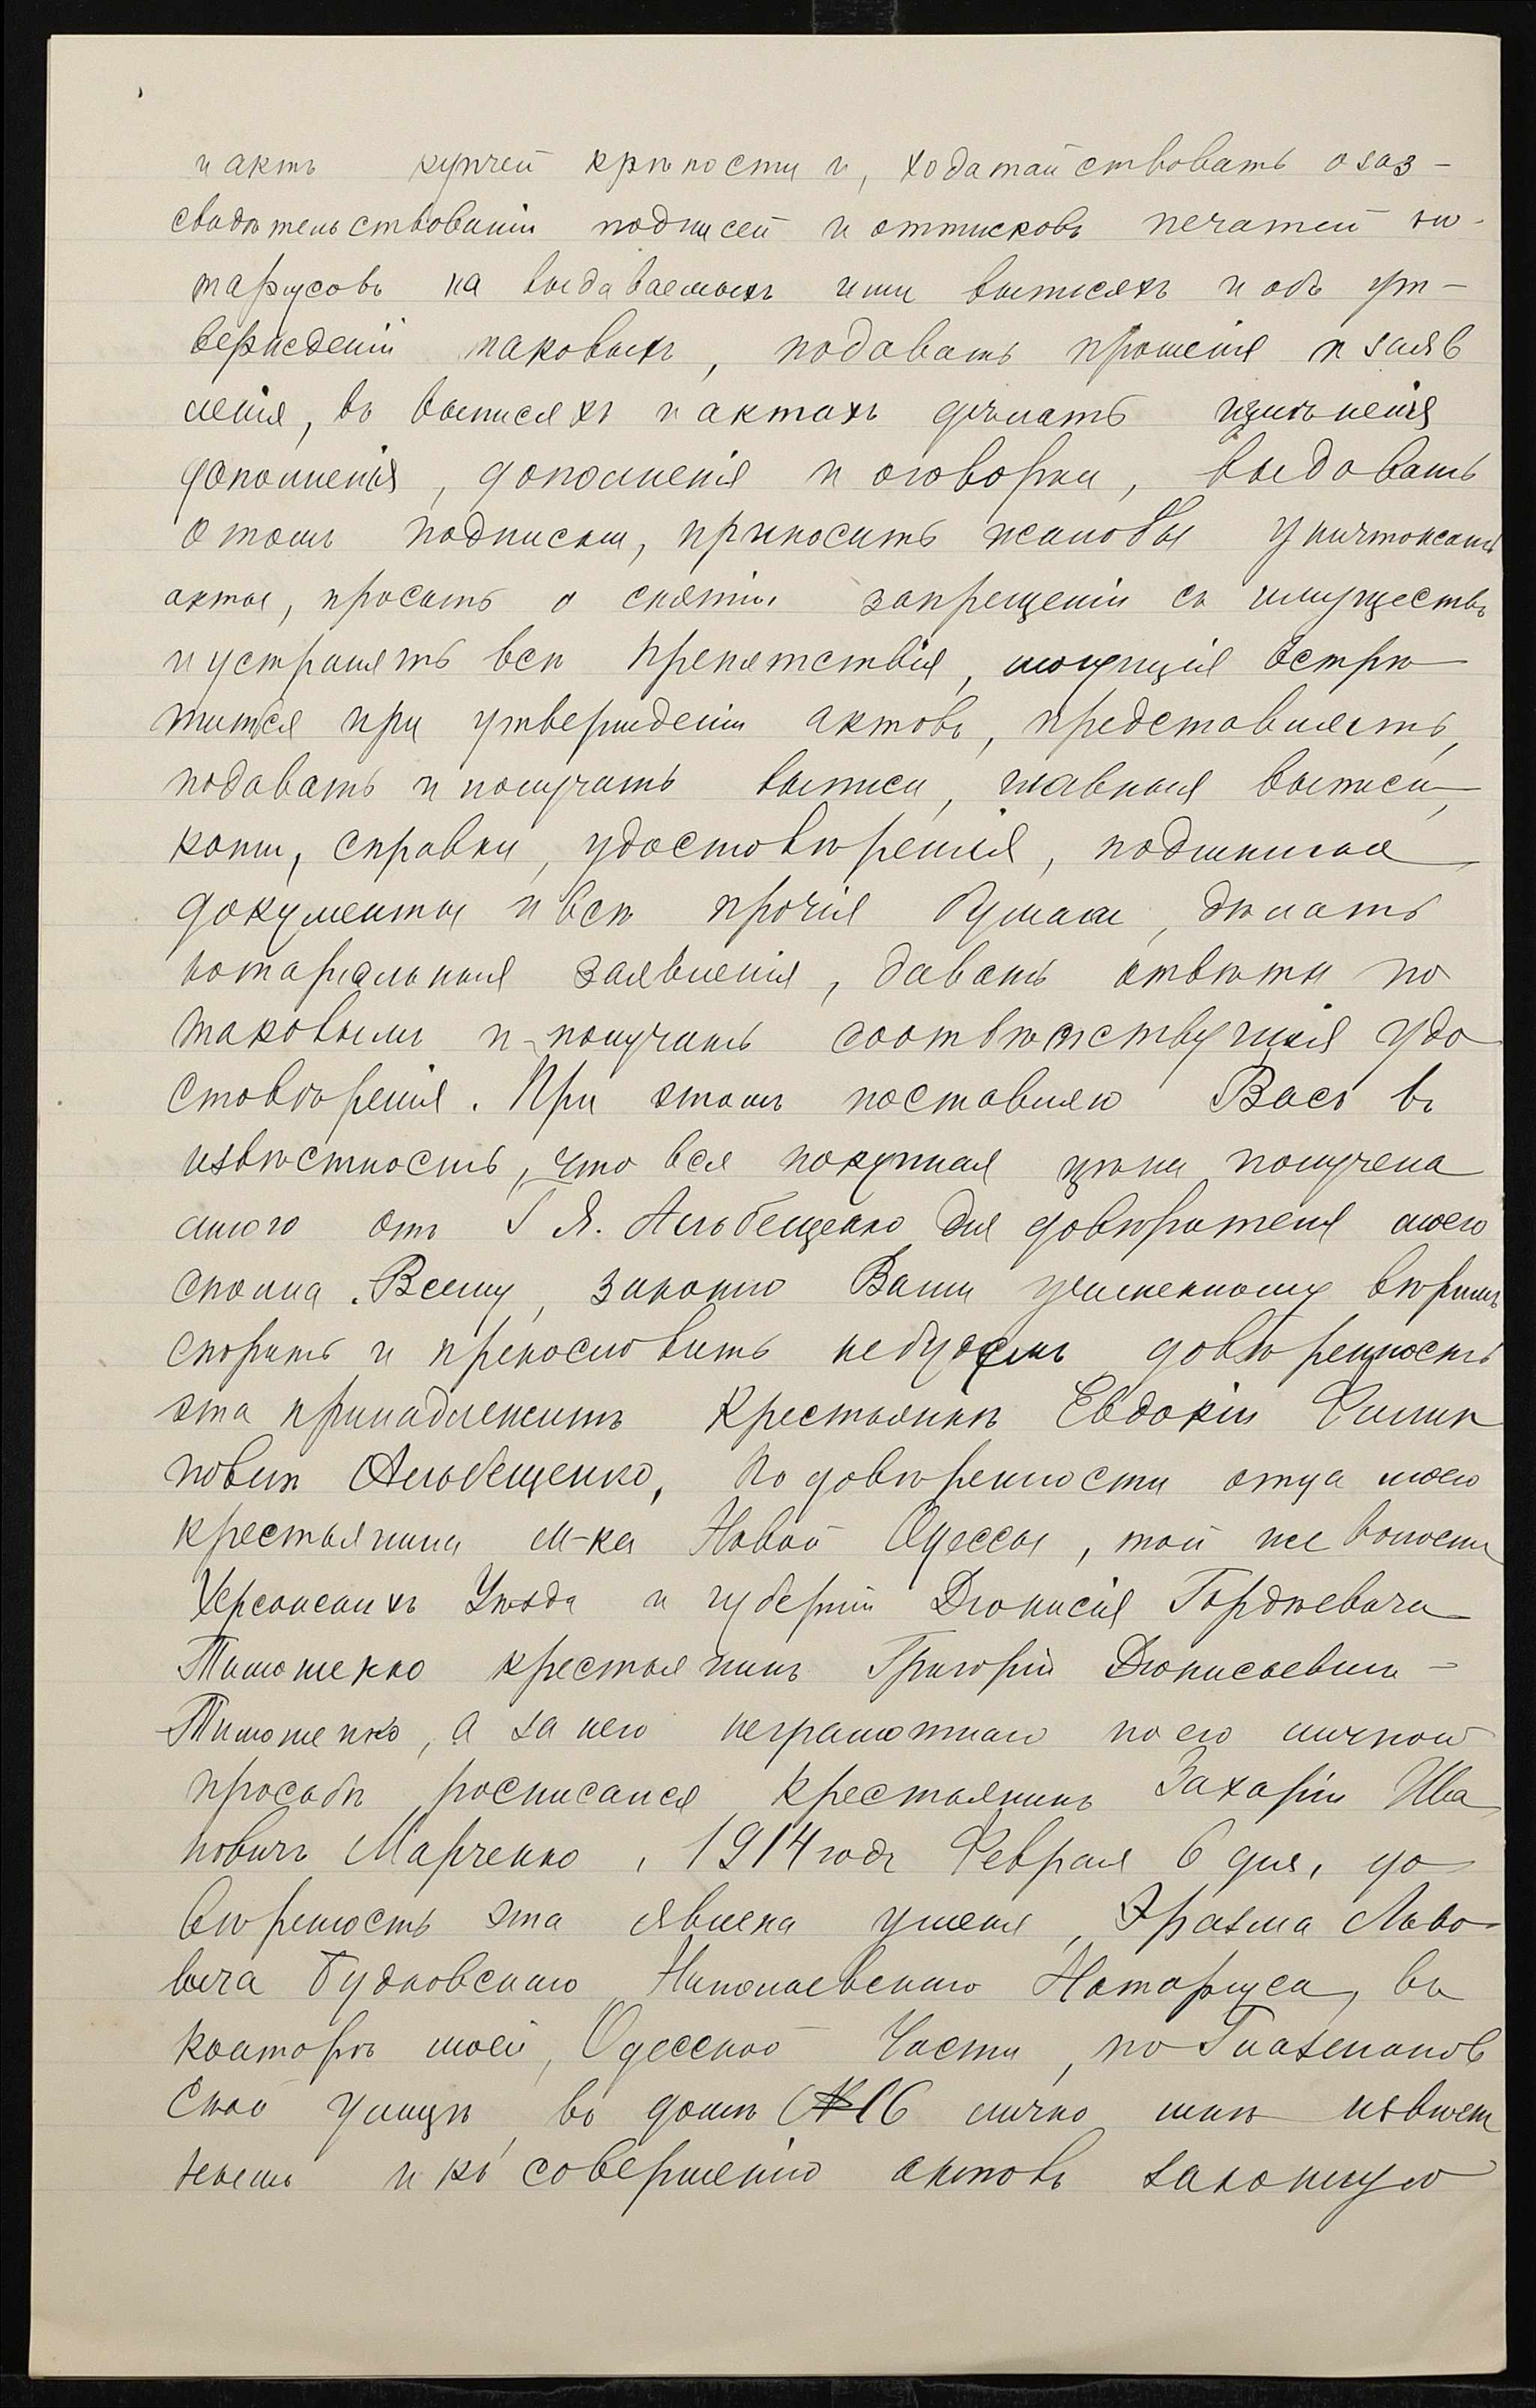 и актъ купчей крѣпости и, ходатайствовать о заз-
свидѣтельствованіи подписей и оттисковъ печатей но-
таріусовъ на выдаваемыхъ ими выписяхъ и объ ут-
вержденіи таковыхъ, подавать прошенія и заяв
ленія, въ выписяхъ и актахъ дѣлать измѣненія
дополненія, дополненія и оговорки, выдавать
о томъ подписки, приносить жалобы уничтожать
акты, просить о снятіи запрещеніи съ имуществъ
и устранять всѣ препятствія, могущія встрѣ
титься при утвержденіи актовъ, представлять,
подавать и получать выписи, главныя выписи,
копіи, справки, удостовѣренія, подлинныя
документы и всѣ прочія бумаги, дѣлать
нотаріальныя заявленія, давать отвѣты по
таковымъ и получать соотвѣтствующія удо
стовѣренія. При этомъ поставляю Васъ въ
извѣстность, что вся покупная цѣна получена
мною отъ Г Я. Альбещенко для довѣрителя моего
сполна. Всему, законно Вами учиненному вѣримъ
спорить и прекословить небудемъ довѣренность
эта принадлежитъ Крестьянкѣ Евдокіи Филип
повнѣ Альбещенко, По довѣренности отца моего
крестьянина м-ка Новой Одессы, той же волости
Херсонскихъ Уѣзда и губерніи Діонисія Гордѣевича
Тимошенко крестьянинъ Григорій Діонисьевичъ -
Тимошенко, а за него неграмотнаго по его личной
просьбѣ росписался крестьянинъ Захарій Ива
новичъ Марченко, 1914 года Февраля 6 дня, до
вѣренность эта явлена уменя, Эразма Льво
вича Будковскаго Николаевскаго Нотаріуса, въ
конторѣ моей, Одесской Части, по Глазенапов
ской улицѣ, въ домѣ № 16 лично мнѣ извѣст
нымъ и къ совершенію актовъ законную